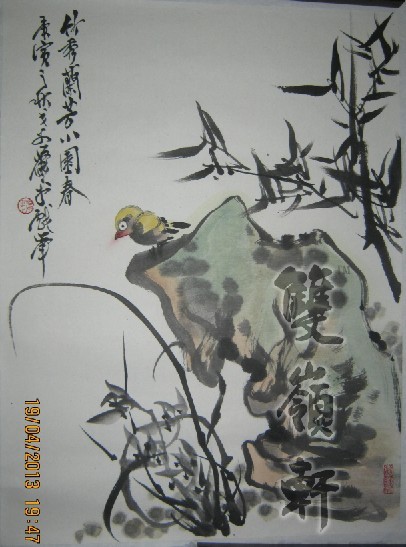 竹秀蘭芳小園春
庚寅之秋
雙嶺軒
19/04/2013 19:47